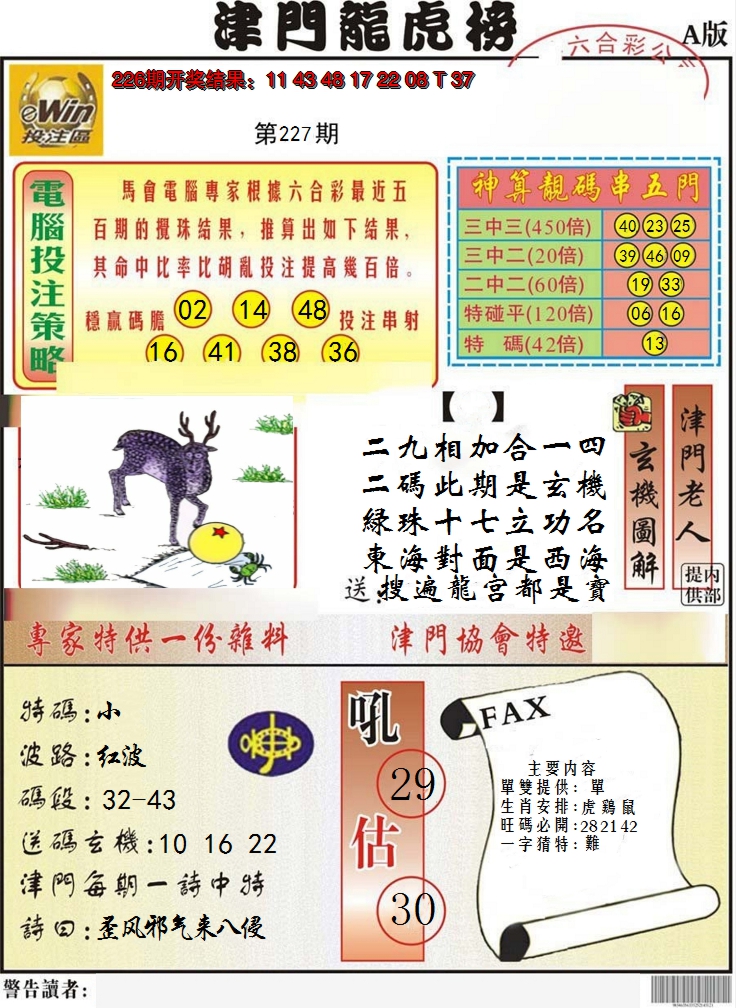 津門龍虎榜
A版
六合彩公
eWin
投注區
226期开奖结果：11 43 48 17 22 08 T 37
第227期
電腦投注策略
馬會電腦專家根據六合彩最近五
百期的攪珠结果，推算出如下结果，
其命中比率比胡亂投注提高幾百倍。
穩贏碼膽 02 14 48 投注串射
16 41 38 36
神算靚碼串五門
三中三(450倍) 40 23 25
三中二(20倍) 39 46 09
二中二(60倍) 19 33
特碰平(120倍) 06 16
特 碼(42倍) 13
【 】
二九相加合一四
二碼此期是玄機
緑珠十七立功名
東海對面是西海
送:搜遍龍宫都是寶
玄機圖解
津門老人
提供
内部
專家特供一份雜料
津門協會特邀
特碼:小
波路:红波
碼段:32-43
送碼玄機:10 16 22
津門每期一詩中特
詩曰:歪风邪气来八侵
吼
29
估
30
FAX
主要内容
單雙提供：單
生肖安排:虎鷄鼠
旺碼必開:282142
一字猜特:難
警告讀者: